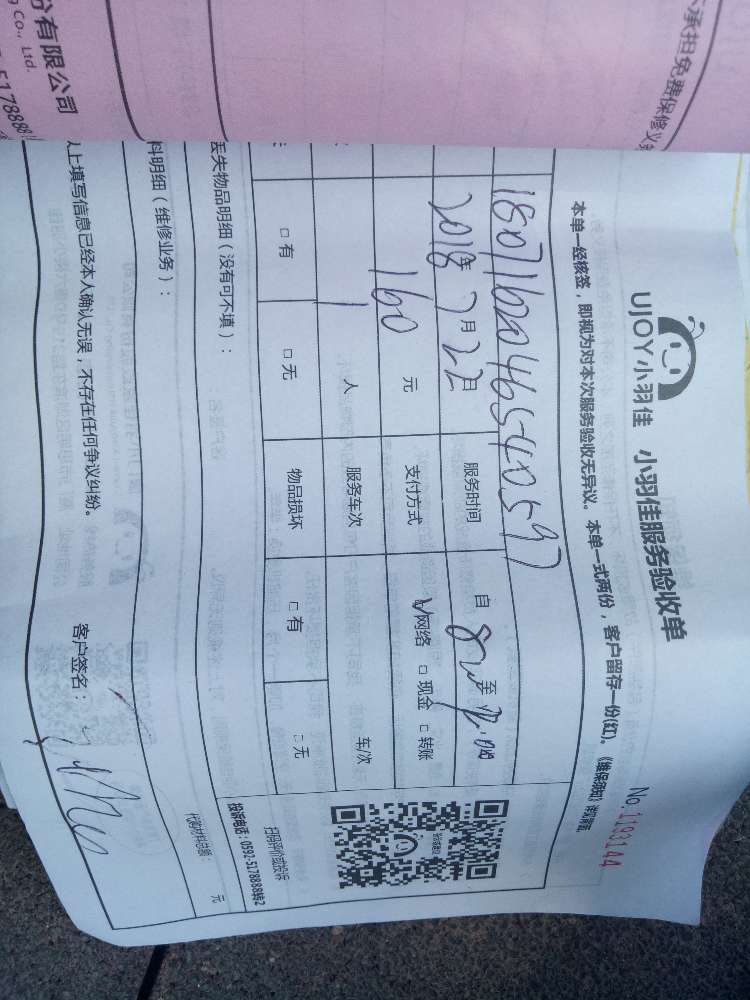 份有限公司
g Co., Ltd.
5178888
承担免费保修义务
UJOY小羽佳 小羽佳服务验收单
No.1793144
本单一经核签，即视为对本次服务验收无异议。本单一式两份，客户留存一份(红)。《维保须知》详见背面
180711620464654059
2018年7月22日 服务时间 自 至
160 元 支付方式 ☑网络 □ 现金 □ 转账
1 人 服务车次 车/次
□ 有 □ 无 物品损坏 □ 有 □ 无
扫码评价或投诉
投诉电话：0592-5178888转2
丢失物品明细（没有可不填）：
料明细（维修业务）：
代购材料总额： 元
以上填写信息已经本人确认无误，不存在任何争议纠纷。 客户签名：